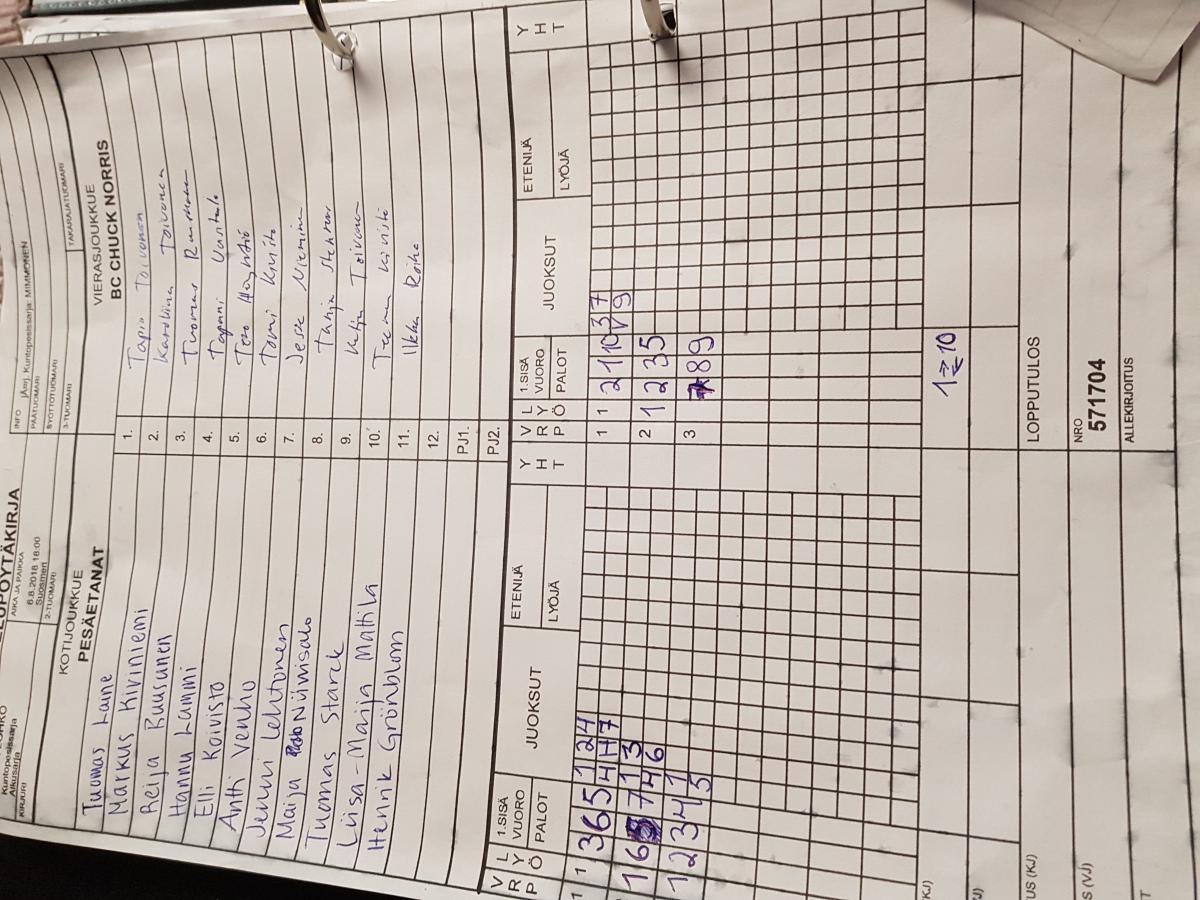 ELUPÖYTÄKIRJA
AIKA JA PAIKKA
6.8.2018 18:00
Suosmeri
2-TUOMARI
INFO
jAmj. Kuntopesissarja: MIMMONEN
PÄÄTUOMARI
SYÖTTÖTUOMARI
3-TUOMARI
TAKARAJATUOMARI
Kuntopesissarja
Aikuisarja
KIRJURI
KOTIJOUKKUE
PESÄETANAT
VIERASJOUKKUE
BC CHUCK NORRIS
Tuomas Laine
Markus Kiviniemi
Reija Ruusunen
Hannu Lammi
Elli Koivisto
Antti Venho
Jenni Lehtonen
Maija Niinisalo
Tuomas Starck
Liisa-Marija Mattila
Henrik Grönblom
1. Tapio Toivonen
2. Karoliina Toivonen
3. Tuomas
4. Tapani
5. Tero
6. Tomi
7. Jesse Nieminen
8. Tanja
9. Katja Toivonen
10. Teemu Kivistö
11. Ilkka
12.
PJ1.
PJ2.
V R P
L Y Ö
1.SISÄ VUORO
PALOT
JUOKSUT
ETENIJÄ
LYÖJÄ
Y H T
1 1 3 6 5 1 2 4
4 H 7
1 6 7 1 3
4 6
1 2 3 4 1
5
V R P
L Y Ö
1.SISÄ VUORO
PALOT
JUOKSUT
ETENIJÄ
LYÖJÄ
Y H T
1 1 2 1 10 3 7
V 9
2 1 2 3 5
3 8 9
KJ)
1 10
LOPPUTULOS
US (KJ)
NRO
571704
US (VJ)
ALLEKIRJOITUS
T